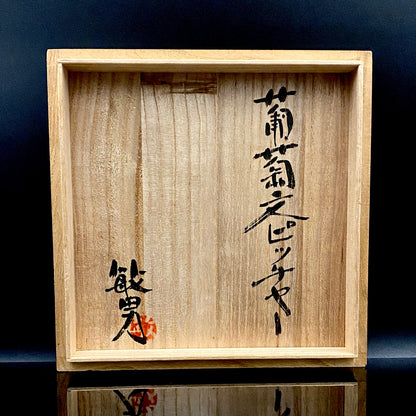 葡萄文ピッチャー
敏男